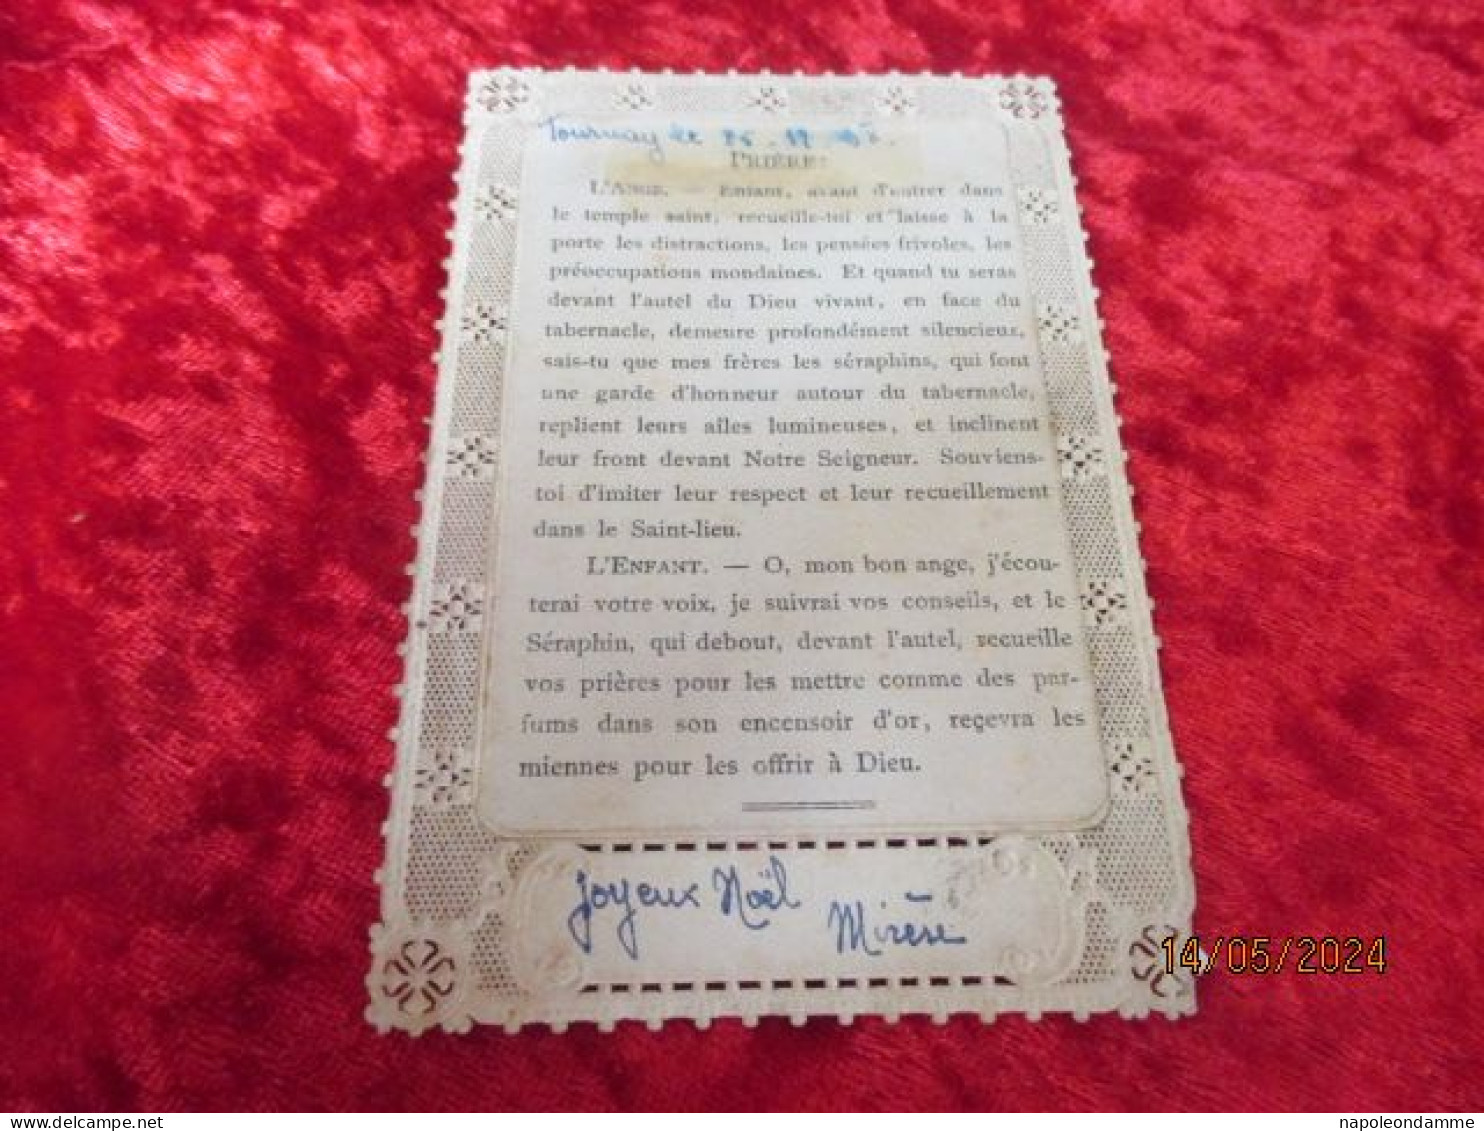 Tournay le 25.12
PRIÈRE:
L'ANGE. — Enfant, avant d'entrer dans
le temple saint, recueille-toi et laisse à la
porte les distractions, les pensées frivoles, les
préoccupations mondaines. Et quand tu seras
devant l'autel du Dieu vivant, en face du
tabernacle, demeure profondément silencieux,
sais-tu que mes frères les séraphins, qui font
une garde d'honneur autour du tabernacle,
replient leurs ailes lumineuses, et inclinent
leur front devant Notre Seigneur. Souviens-
toi d'imiter leur respect et leur recueillement
dans le Saint-lieu.
L'ENFANT. — O, mon bon ange, j'écou-
terai votre voix, je suivrai vos conseils, et le
Séraphin, qui debout, devant l'autel, recueille
vos prières pour les mettre comme des par-
fums dans son encensoir d'or, reçevra les
miennes pour les offrir à Dieu.
Joyeux Noël
14/05/2024
napoleondamme